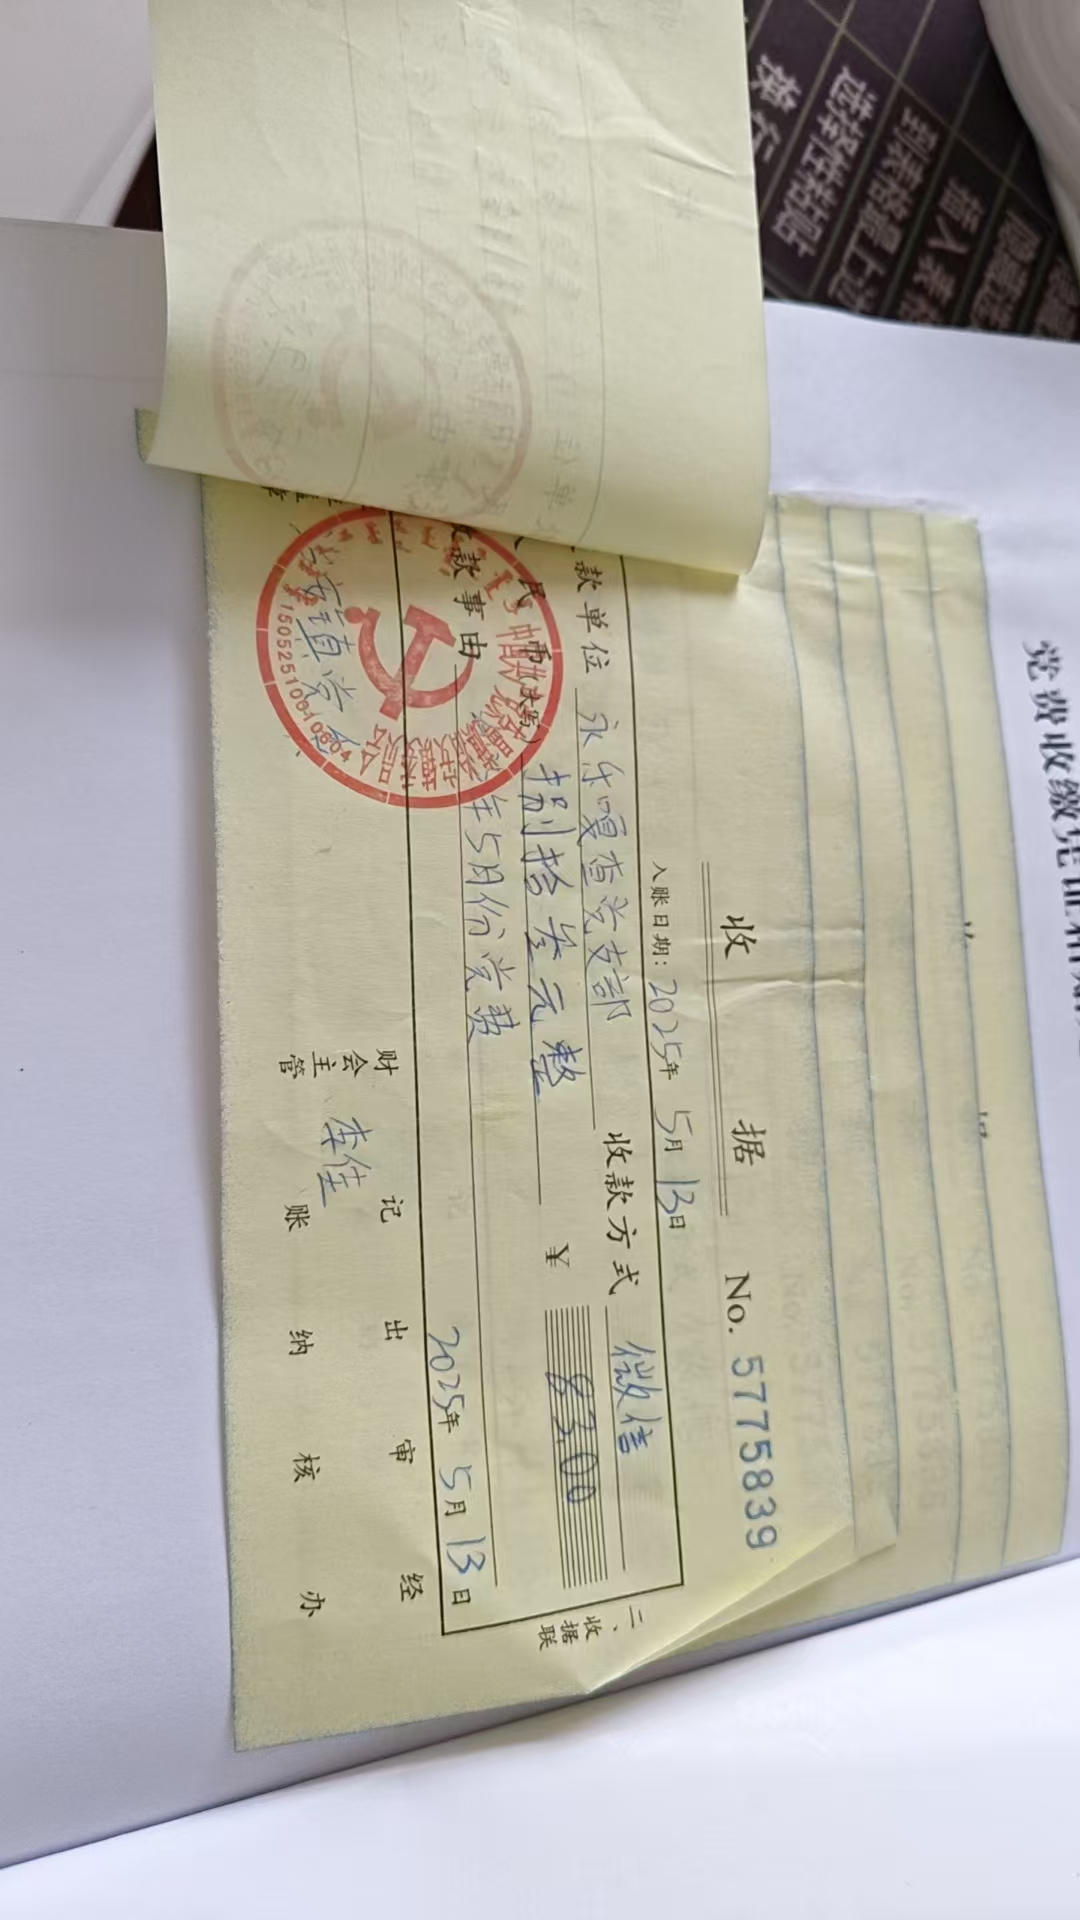 党费收缴凭证
收 据 No. 5775839
入账日期: 2025年 5月 13日
款单位 永乐嘎查党支部 收款方式 微信
民币(大写) 捌拾叁元整 ¥ 83.00
款事由 年5月份党费
2025年 5月 13日
二、收据联
财会主管 李佳 记账 出纳 审核 经办
镇党
15052510010604
选择性粘贴
插入表